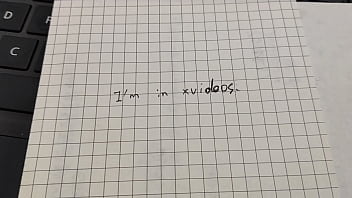 D
C
I'm in xvideos.